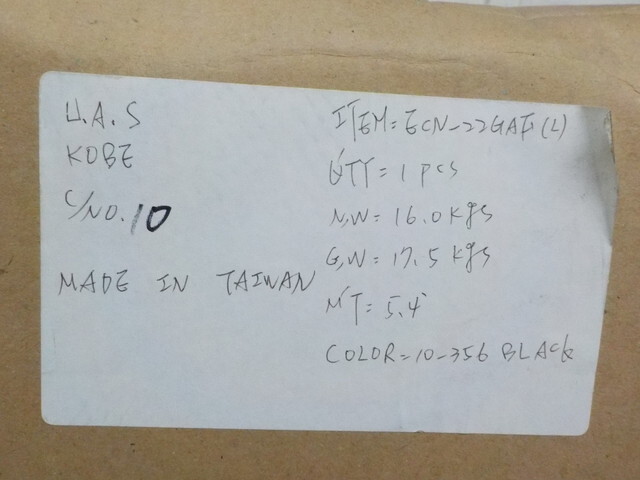 U.A.S
KOBE
C/NO.10
MADE IN TAIWAN
ITEM=ECN-22GAF(L)
Q'TY=1 PCS
N,W=16.0Kgs
G,W=17.5 Kgs
M'T=5.4'
COLOR=10-356 BLACK